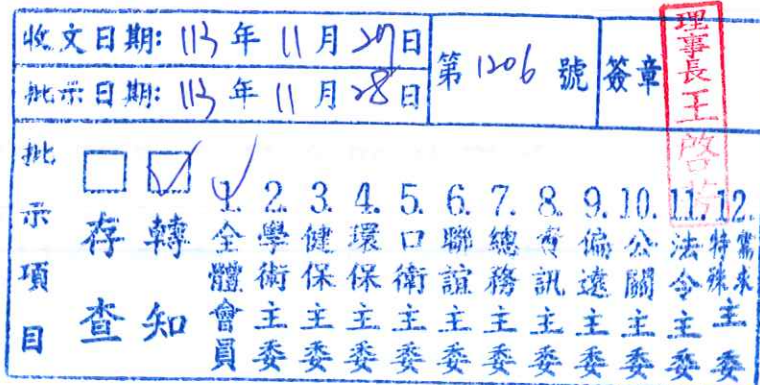 收文日期: 113 年 11 月 27日
批示日期: 113 年 11 月 28日
第 1206 號
簽章
理事長王啓
批示項目
存查
轉知
1. 全體會員
2. 學術主委
3. 健保主委
4. 環保主委
5. 口衛主委
6. 聯誼主委
7. 總務主委
8. 資訊主委
9. 偏遠主委
10. 公關主委
11. 法令主委
12. 特殊需求主委